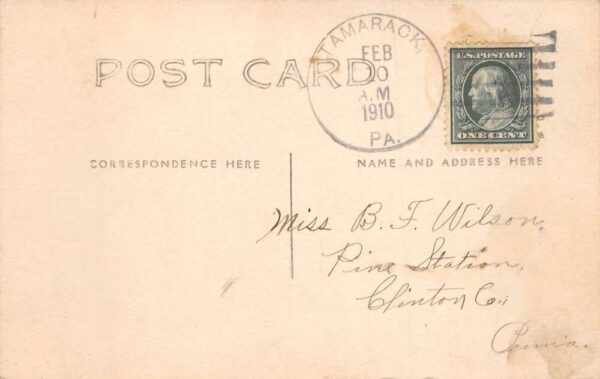 TAMARACK,
FEB
0
A.M
1910
PA.
U.S. POSTAGE
ONE CENT
POST CARD
CORRESPONDENCE HERE
NAME AND ADDRESS HERE
Miss B. F. Wilson,
Pine Station,
Clinton Co.,
Penna.